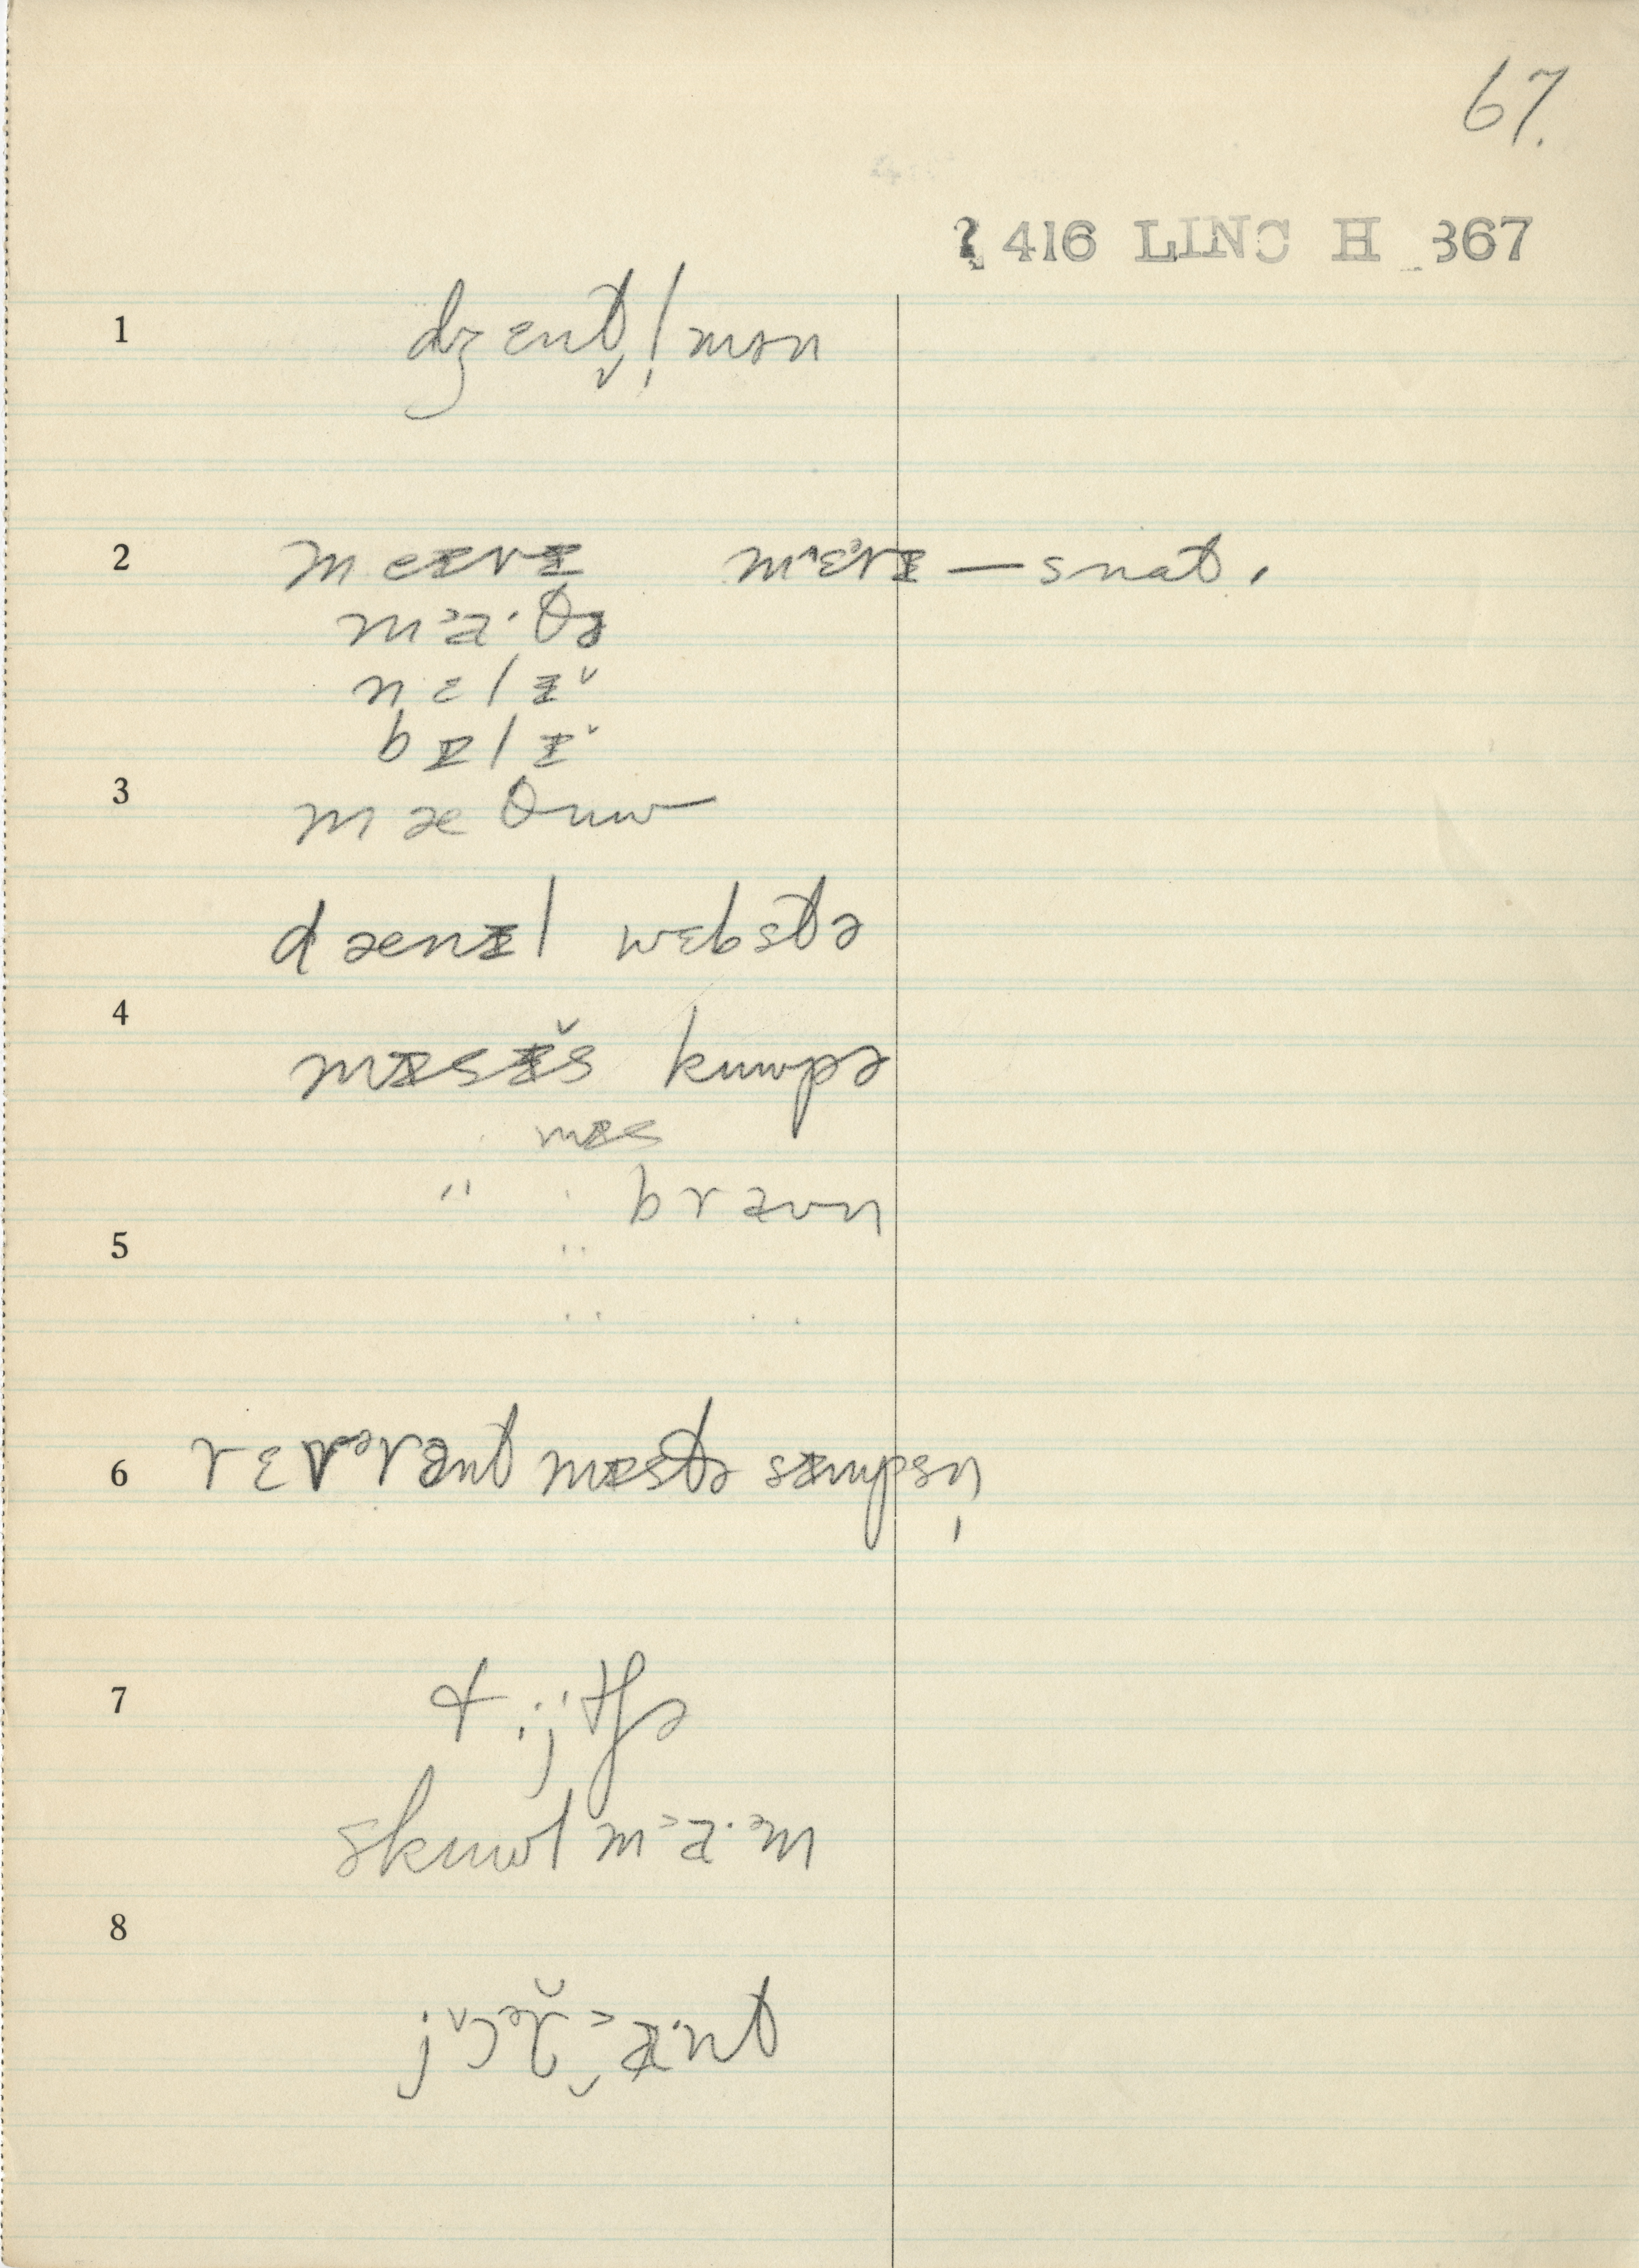 67.
? 416 LINC H 367
1 dʒɛnt̬l̩mən
2 meɪrɪ mɛərɪ — snat.
mᵓa·θə
nɛlɪˇ
bɪlɪˇ
3 mæθuw
dænɪl wɛbstə
4 mɪsɪ̆s kuwpə
mɪs
" brəun
5
6 rɛvᵊrənt mɪstə sɪmpsn̩
7 ti·jtʃə
skuwl mᵓa·ᵊm
8